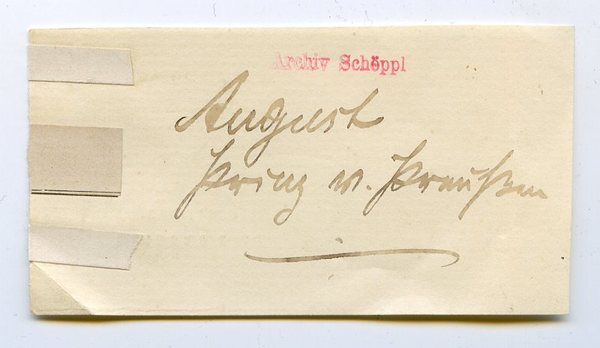 Archiv Schöppl
August
Prinz v. Preußen